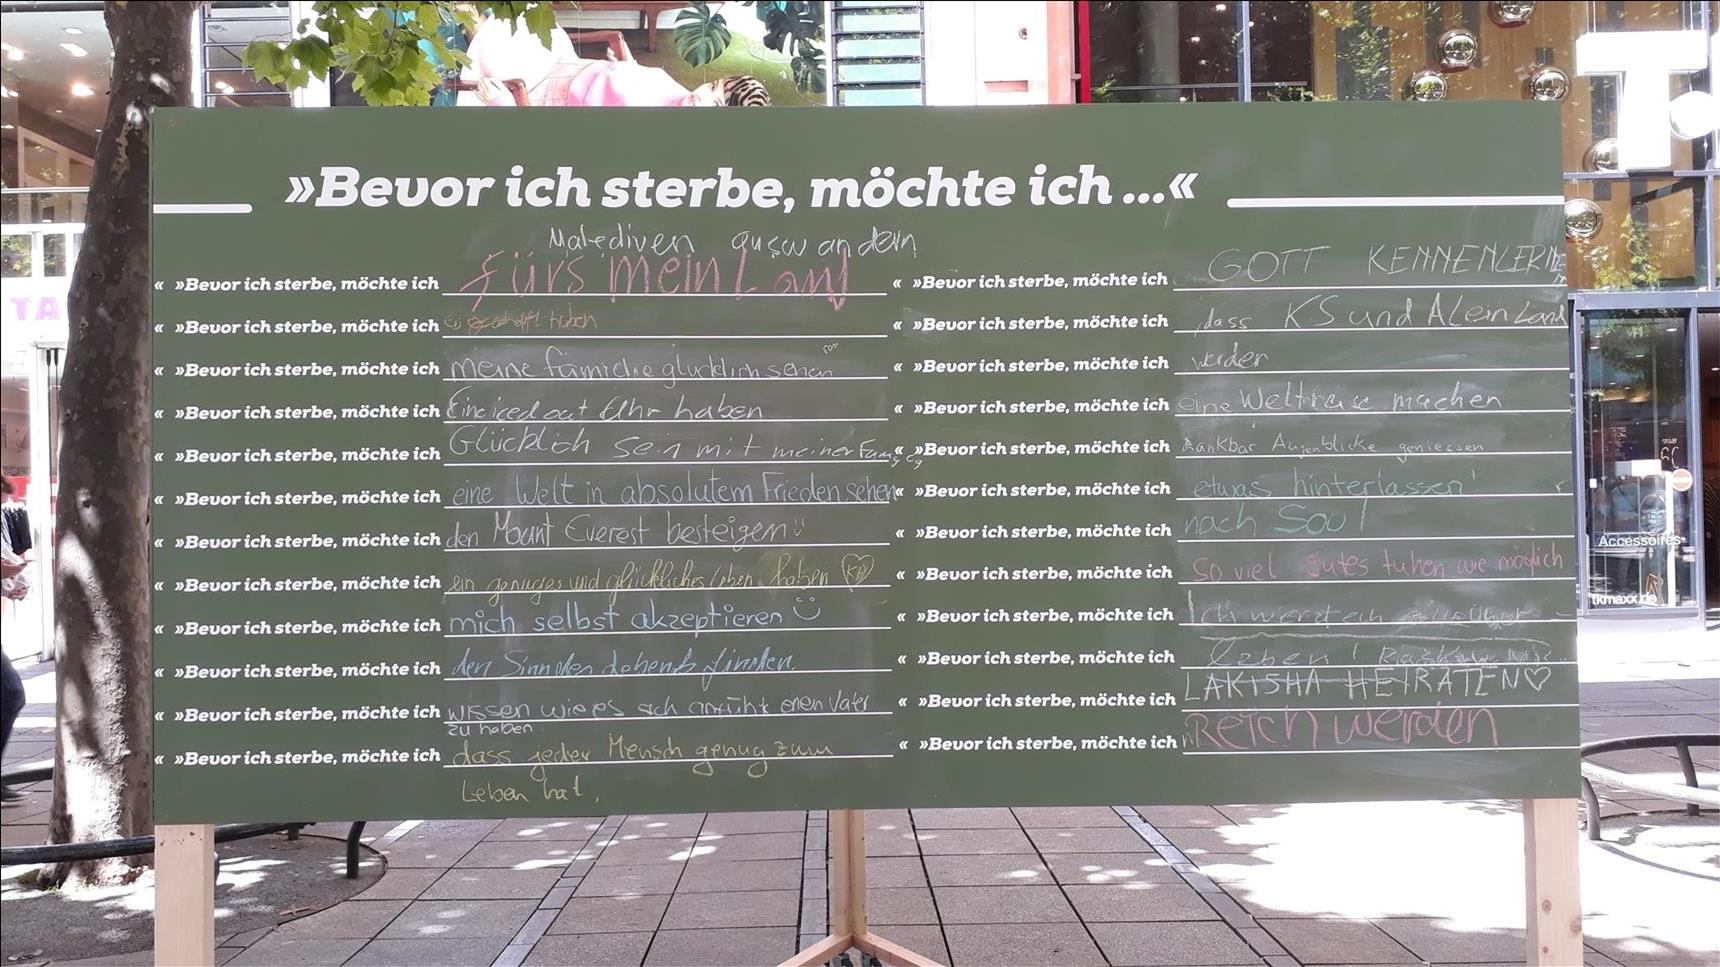 »Bevor ich sterbe, möchte ich ...«
Malediven auswandern
« »Bevor ich sterbe, möchte ich fürs mein Land
« »Bevor ich sterbe, möchte ich haben
« »Bevor ich sterbe, möchte ich meine familie glücklich sehen
« »Bevor ich sterbe, möchte ich Eine iced out Uhr haben
« »Bevor ich sterbe, möchte ich Glücklich sein mit meiner
« »Bevor ich sterbe, möchte ich eine Welt in absolutem Frieden sehen
« »Bevor ich sterbe, möchte ich den Mount Everest besteigen
« »Bevor ich sterbe, möchte ich ein und glückliches Leben haben
« »Bevor ich sterbe, möchte ich mich selbst akzeptieren
« »Bevor ich sterbe, möchte ich den Sinn des Lebens finden.
« »Bevor ich sterbe, möchte ich wissen wie es sich anfühlt einen Vater
zu haben
« »Bevor ich sterbe, möchte ich dass jeder Mensch genug zum
Leben hat.
« »Bevor ich sterbe, möchte ich GOTT KENNENLERNEN
« »Bevor ich sterbe, möchte ich , dass KS und AL ein Land
« »Bevor ich sterbe, möchte ich werden
« »Bevor ich sterbe, möchte ich eine Weltreise machen
« »Bevor ich sterbe, möchte ich dankbar Augenblicke geniessen
« »Bevor ich sterbe, möchte ich etwas hinterlassen!
« »Bevor ich sterbe, möchte ich nach Soul
« »Bevor ich sterbe, möchte ich so viel gutes tuhen wie möglich
« »Bevor ich sterbe, möchte ich Ich
« »Bevor ich sterbe, möchte ich Leben!
« »Bevor ich sterbe, möchte ich LAKISHA HEIRATEN
« »Bevor ich sterbe, möchte ich Reich werden
T
TA
Accessoires
tkmaxx.de